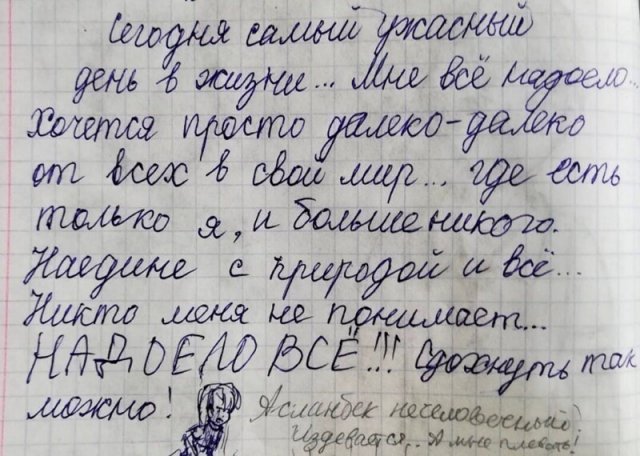 Сегодня самый ужасный
день в жизни... Мне всё надоело...
Хочется просто далеко-далеко
от всех в свой мир... где есть
только я, и больше никого.
Наедине с природой и всё...
Никто меня не понимает...
НАДОЕЛО ВСЁ!!! Сдохнуть так
можно!
Асланбек нечеловечный!
Издевается.. А мне плевать!